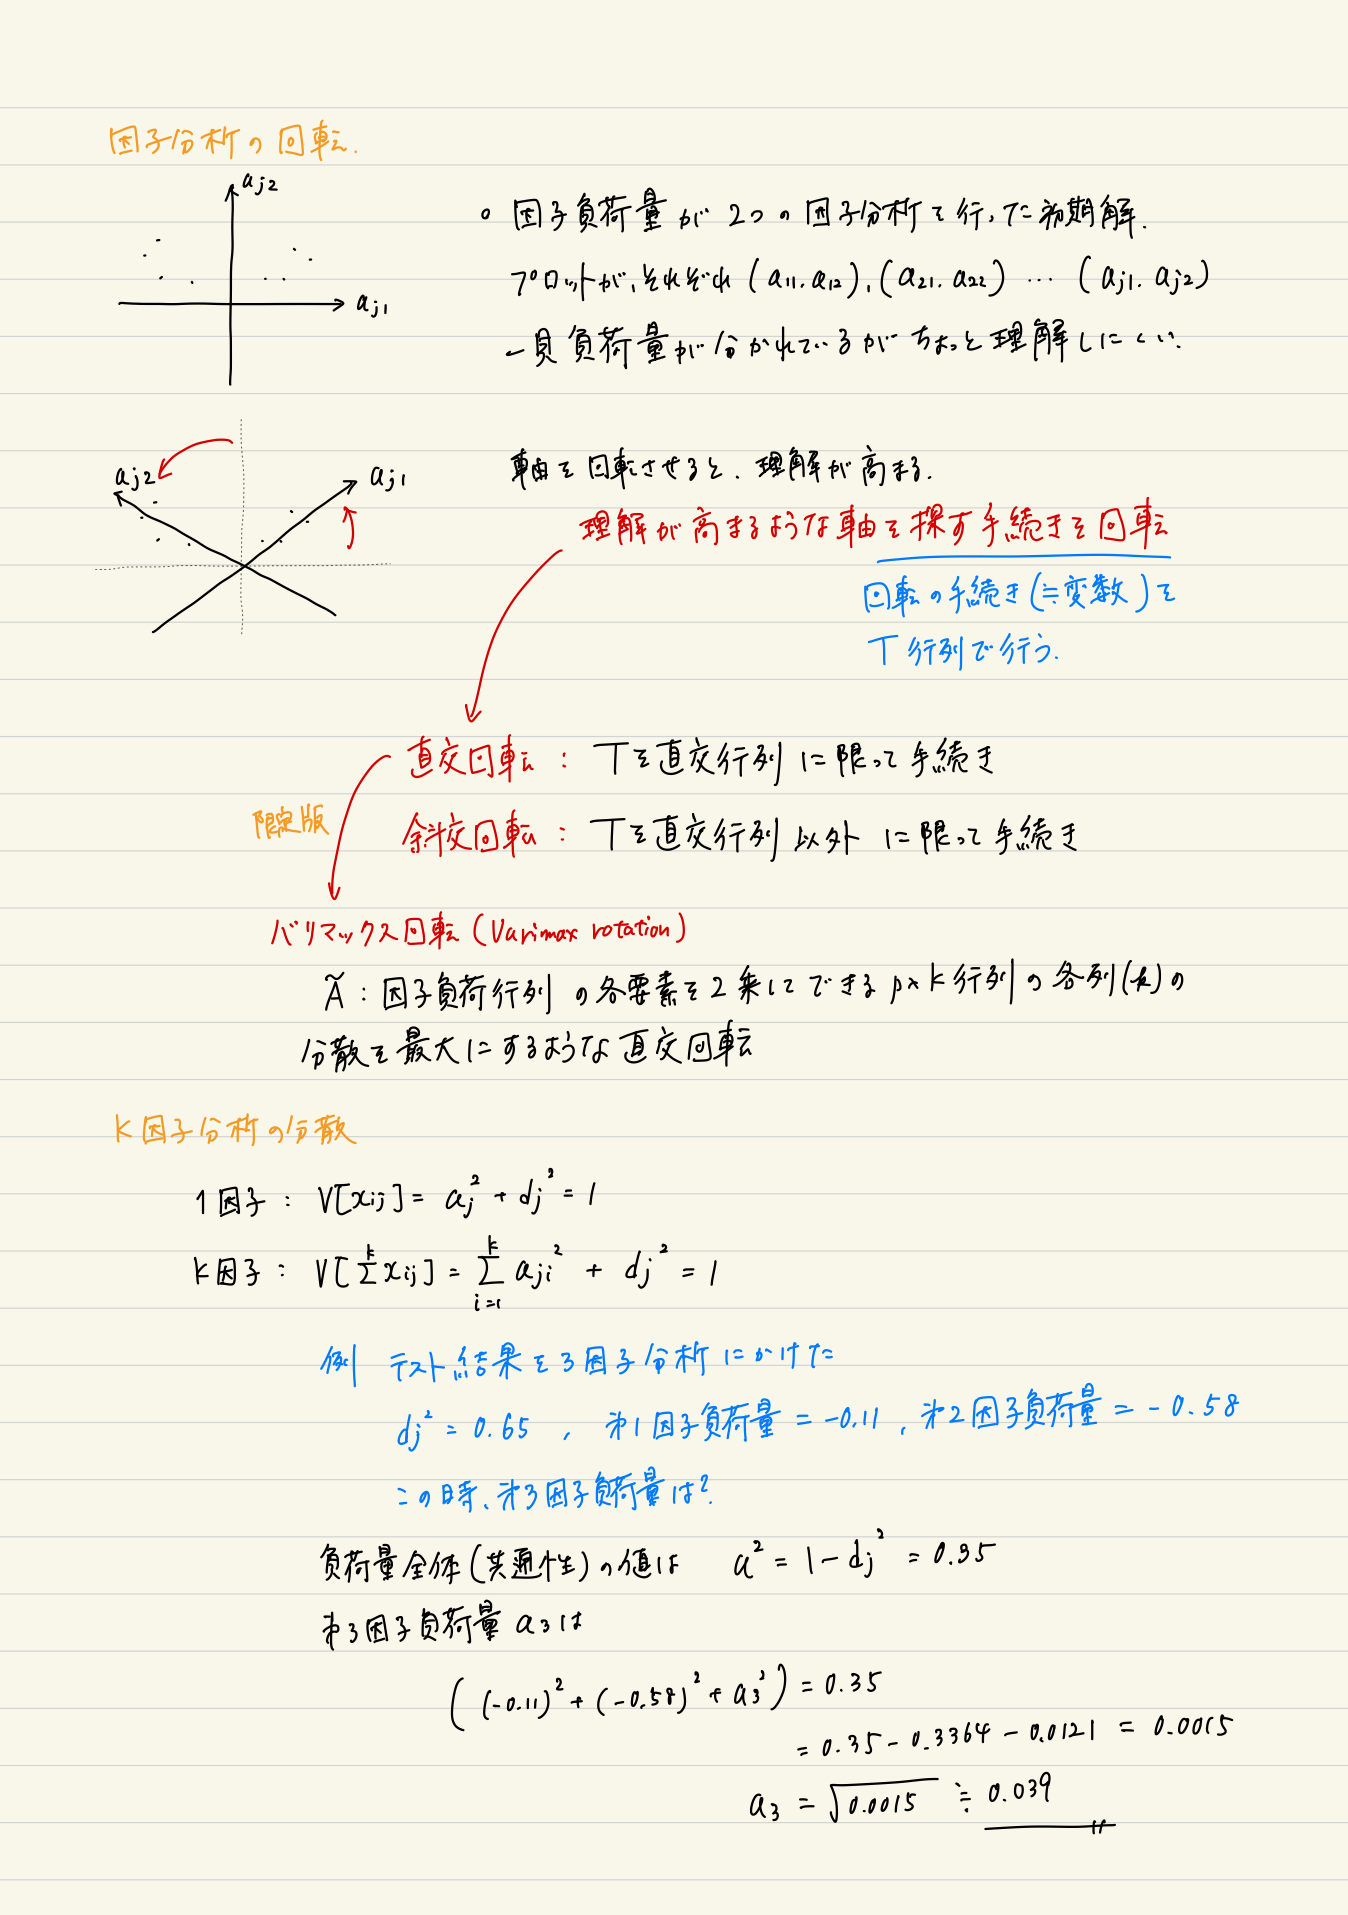 因子分析の回転.
aj2
aj1
○ 因子負荷量が2つの因子分析で行った初期解.
プロットが、それぞれ (a11. a12), (a21. a22) … (aj1. aj2)
一見負荷量が分かれているがちょっと理解しにくい.
aj2
aj1
軸を回転させると、理解が高まる.
理解が高まるような軸を探す手続きを回転
回転の手続き(≒変数)を
T行列で行う.
直交回転 : Tを直交行列に限って手続き
限定版
斜交回転 : Tを直交行列以外に限って手続き
バリマックス回転 (Varimax rotation)
Ã : 因子負荷行列の各要素を2乗してできるp×k行列の各列(k)の
分散を最大にするような直交回転
k因子分析の分散
1因子 : V[xij] = aj² + dj² = 1
k因子 : V[Σ^k xij] = Σ_{i=1}^k aji² + dj² = 1
例 テスト結果を3因子分析にかけた
dj² = 0.65 , 第1因子負荷量 = -0.11 , 第2因子負荷量 = -0.58
この時、第3因子負荷量は?
負荷量全体(共通性)の値は a² = 1 - dj² = 0.35
第3因子負荷量 a3は
((-0.11)² + (-0.58)² + a3²) = 0.35
= 0.35 - 0.3364 - 0.0121 = 0.0015
a3 = √0.0015 ≒ 0.039